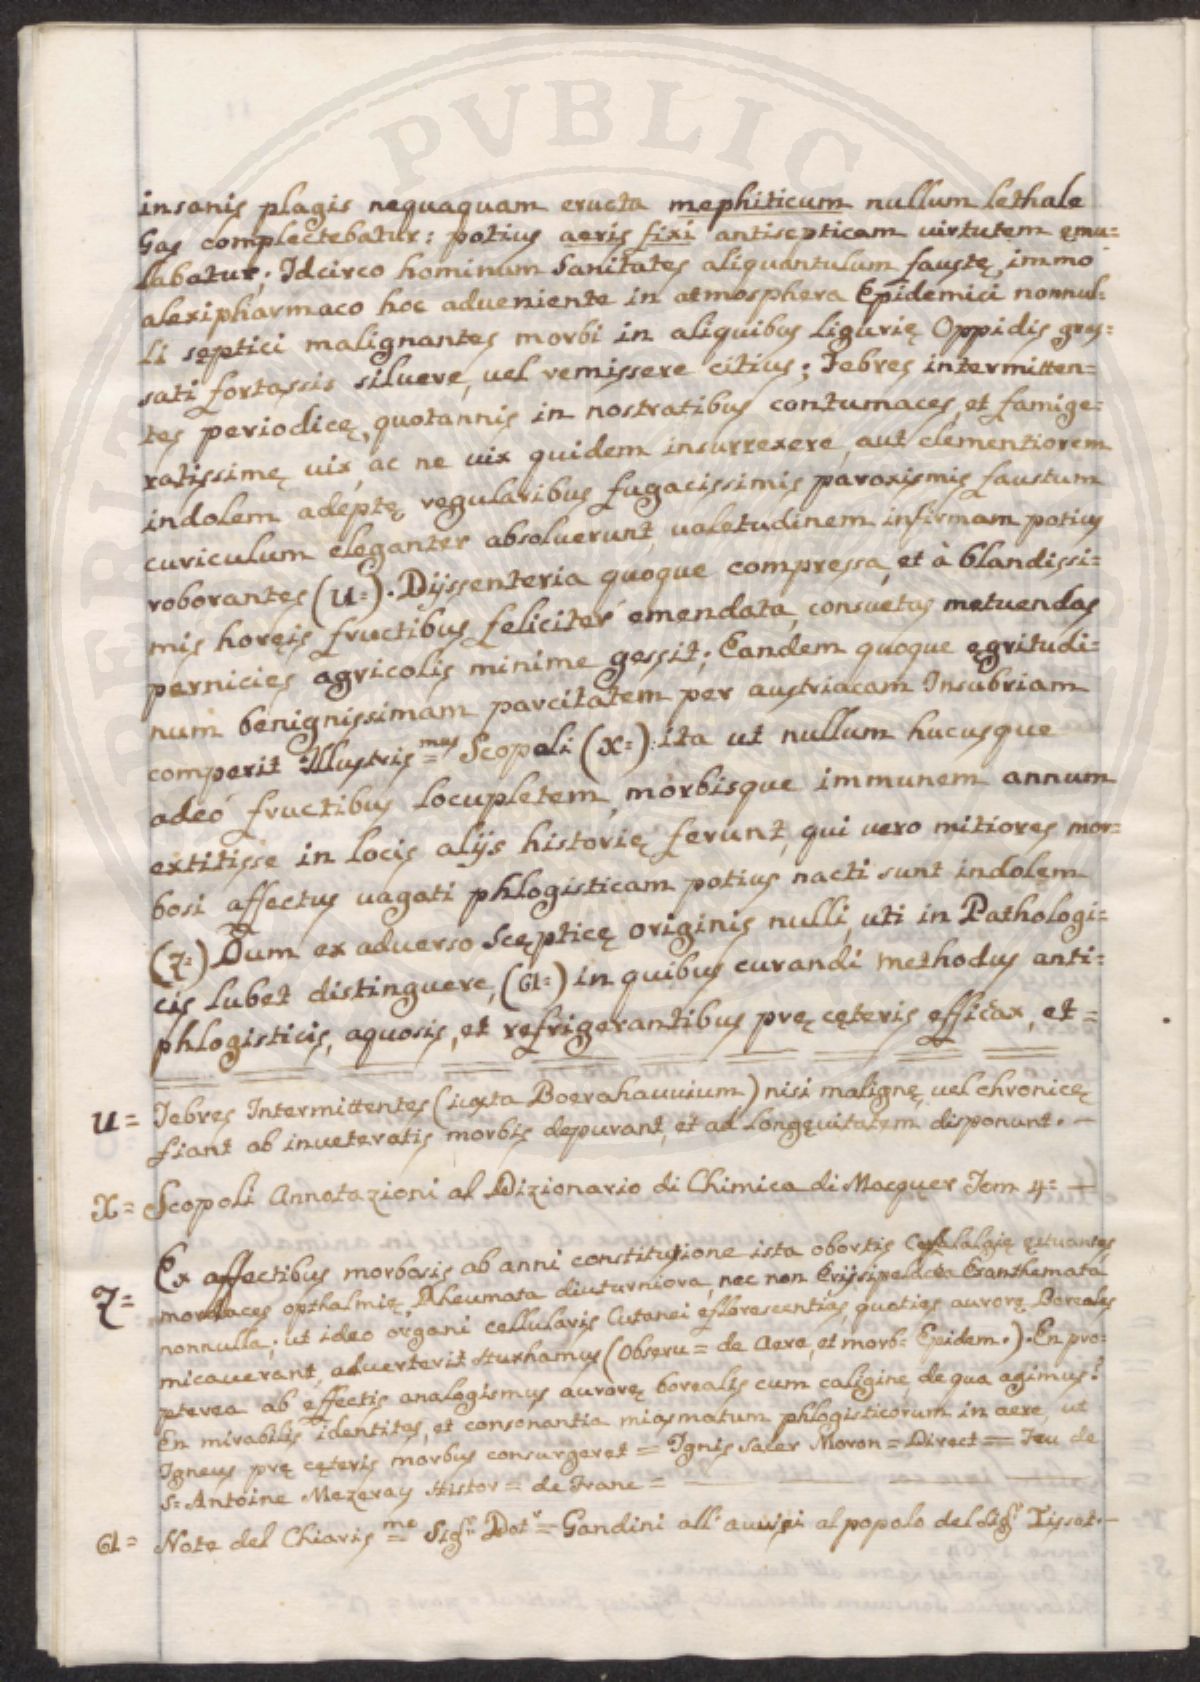 PVBLIC
insanis plagis nequaquam eructa mephiticum nullum lethale
Gas complectebatur: potius aeris fixi antisepticam uirtutem ęmu=
labatur; Idcirco hominum Sanitates aliquantulum faustę, immo
alexipharmaco hoc adueniente in atmosphera Epidemici nonnul=
li sęptici malignantes morbi in aliquibus Ligurię Oppidis gras=
sati fortassis siluere, uel remissere citius; Febres intermitten=
tes periodicę, quotannis in nostratibus contumaces, et famige=
ratissimę uix, ac ne uix quidem insurrexere, aut clementiorem
indolem adeptę regularibus fugacissimis paroxismis faustum
curiculum eleganter absoluerunt, ualetudinem infirmam potius
roborantes (U=). Dijssenteria quoque compressa, et à blandissi=
mis horęis fructibus feliciter emendata, consuetas metuendas
pernicies agricolis minime gessit; Eandem quoque ęgritudi=
num benignissimam parcitatem per austriacam Insubriam
comperit Illustris=mus Scopoli (X=): ita ut nullum hucusque
adeó fructibus locupletem, morbisque immunem annum
extitisse in locis alijs historię ferunt, qui uero mitiores mor=
bosi affectus uagati phlogisticam potius nacti sunt indolem
(Z=) Dum ex aduerso Scępticę originis nulli, uti in Pathologi=
cis lubet distinguere, (&=) in quibus curandi methodus anti=
phlogisticis, aquosis, et refrigerantibus prę cęteris efficax, et=
U= Febres Intermittentes (iuxta Boerahauuium) nisi malignę, uel chronicę
fiant ab inueteratis morbis depurant, et ad longęuitatem disponunt.
X= Scopoli Annotazioni al Dizionario di Chimica di Macquer Tom 4=
Z= Ex affectibus morbosis ab anni constitutione ista obortis Cephalalgię ęstuantes
mordaces opthalmię, Rheumata diuturniora, nec non Erijsipelacea Exanthemata
nonnulla; ut ideo organi cellularis Cutanei eflorescentias, quoties aurorę Boreales
micauerant, aduerterit Huxhamus (Obseru= de Aere, et morb= Epidem.). En pro=
pterea ab effectis analogismus aurorę borealis cum caligine, de qua agimus!
En mirabilis identitas, et consonantia miasmatum phlogisticorum in aere, ut
Igneus prę cęteris morbus consurgeret= Ignis Sacer Moron= Direct= Feu de
S= Antoine Mezeray Histor= de Franc=
&= Note del Chiaris=mo Sigr Dotr= Gandini all' auuisi al popolo del Sigr Tissot.